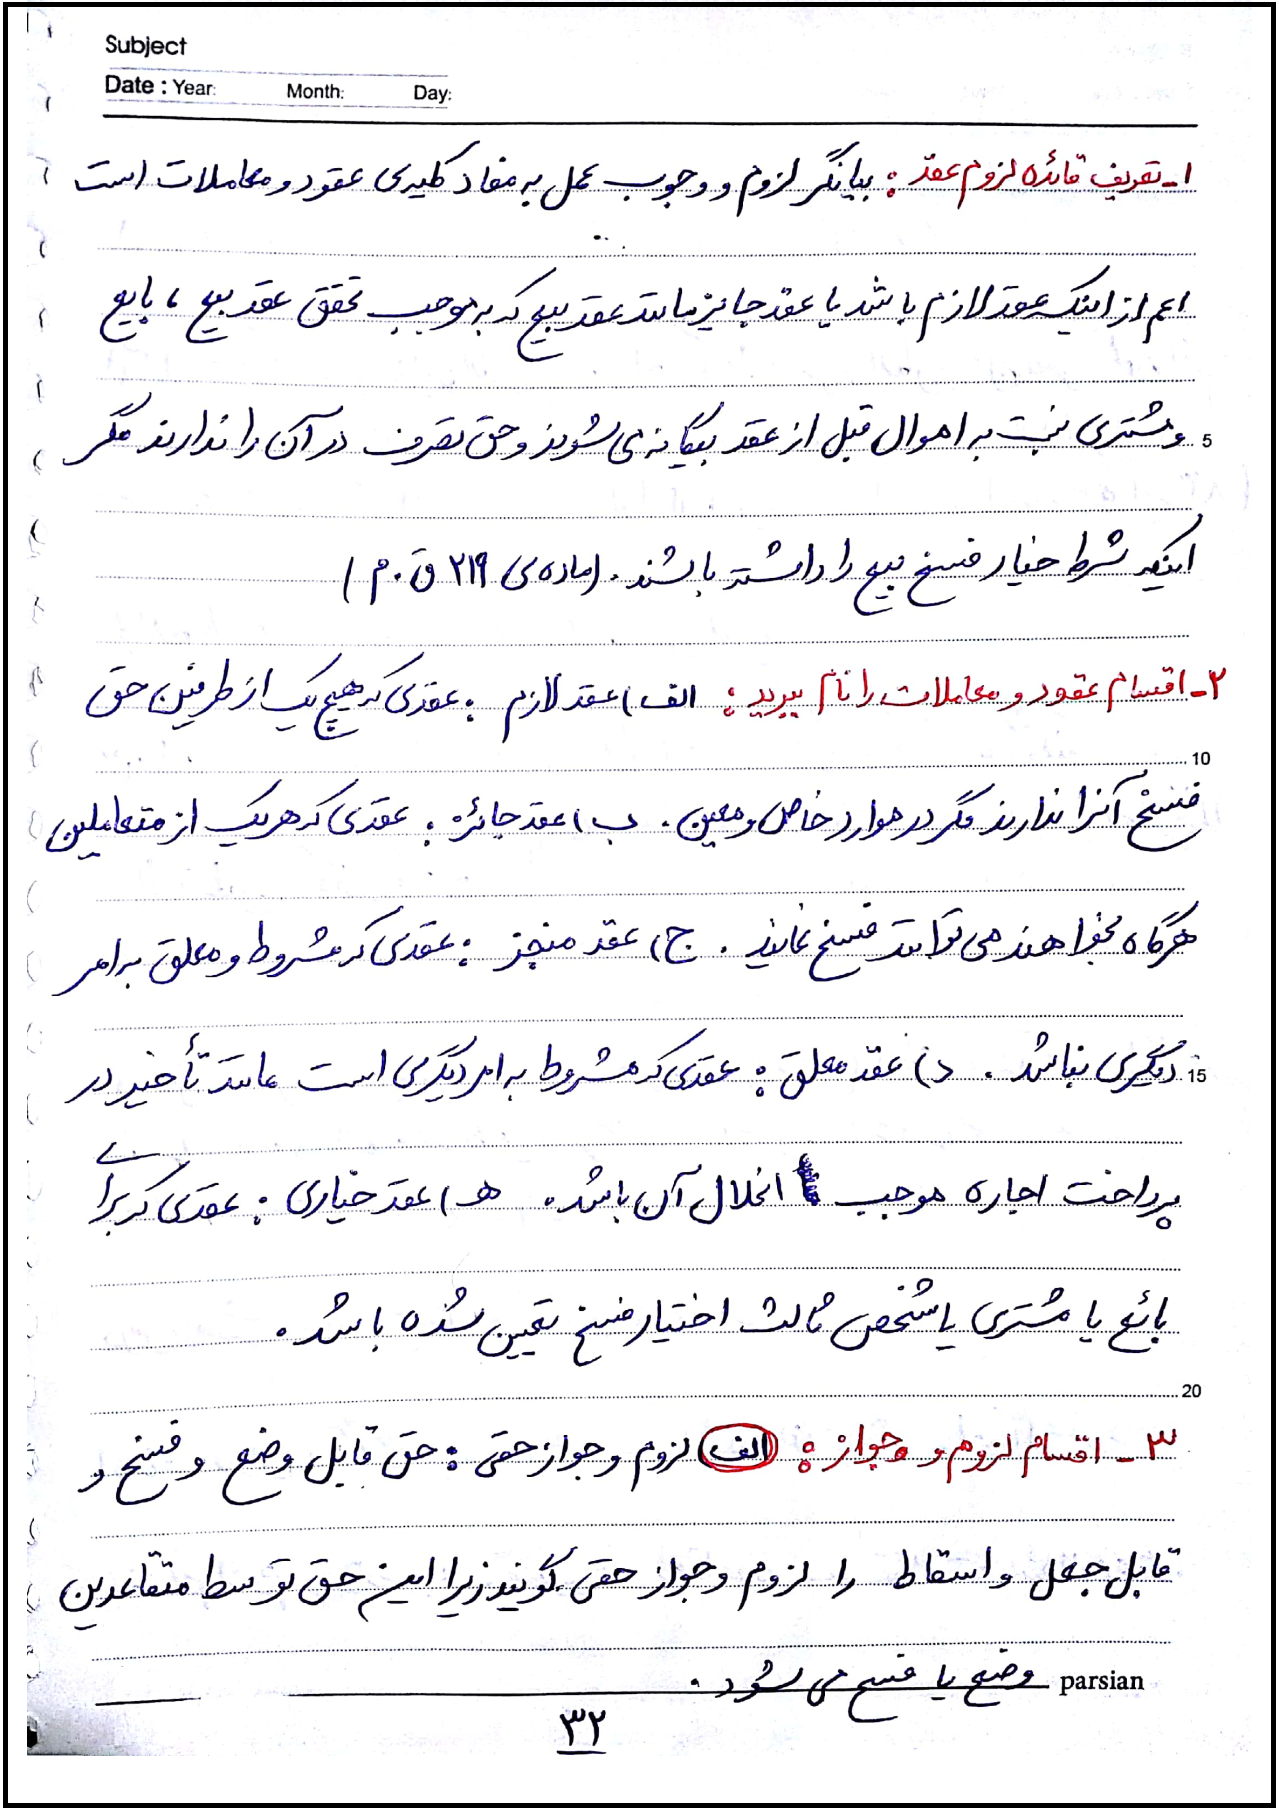 Subject
Date : Year: Month: Day:
۱- تعریف قائده لزوم عقد : بیانگر لزوم و وجوب عمل به مفاد کلیدی عقود و معاملات است
اعم از اینکه عقد لازم باشد یا عقد جایز مانند عقد بیع که به موجب تحقق عقد بیع ، بایع
5 و مشتری نسبت به اموال قبل از عقد بیگانه می شوند و حق تصرف در آن را ندارند مگر
اینکه شرط خیار فسخ بیع را داشته باشند . (ماده ی ۲۱۹ ق . م )
۲- اقسام عقود و معاملات را نام ببرید : الف) عقد لازم : عقدی که هیچ یک از طرفین حق
10
فسخ آنرا ندارند مگر در موارد خاص و معین . ب) عقد جائزه : عقدی که هر یک از متعاملین
هرگاه بخواهند می توانند فسخ نمایند . ج) عقد منجز : عقدی که مشروط و معلق به امر
15 دیگری نباشد . د) عقد معلق : عقدی که مشروط به امر دیگری است مانند تأخیر در
پرداخت اجاره موجب انحلال آن باشد . هـ) عقد خیاری : عقدی که برای
بائع یا مشتری یا شخص ثالث اختیار فسخ تعیین شده باشد .
20
۳- اقسام لزوم و جواز : الف لزوم و جواز حقی : حق قابل وضع و فسخ و
قابل جعل و اسقاط را لزوم و جواز حقی گویند زیرا این حق توسط متعاقدین
وضع یا فسخ می شود . parsian
۳۲